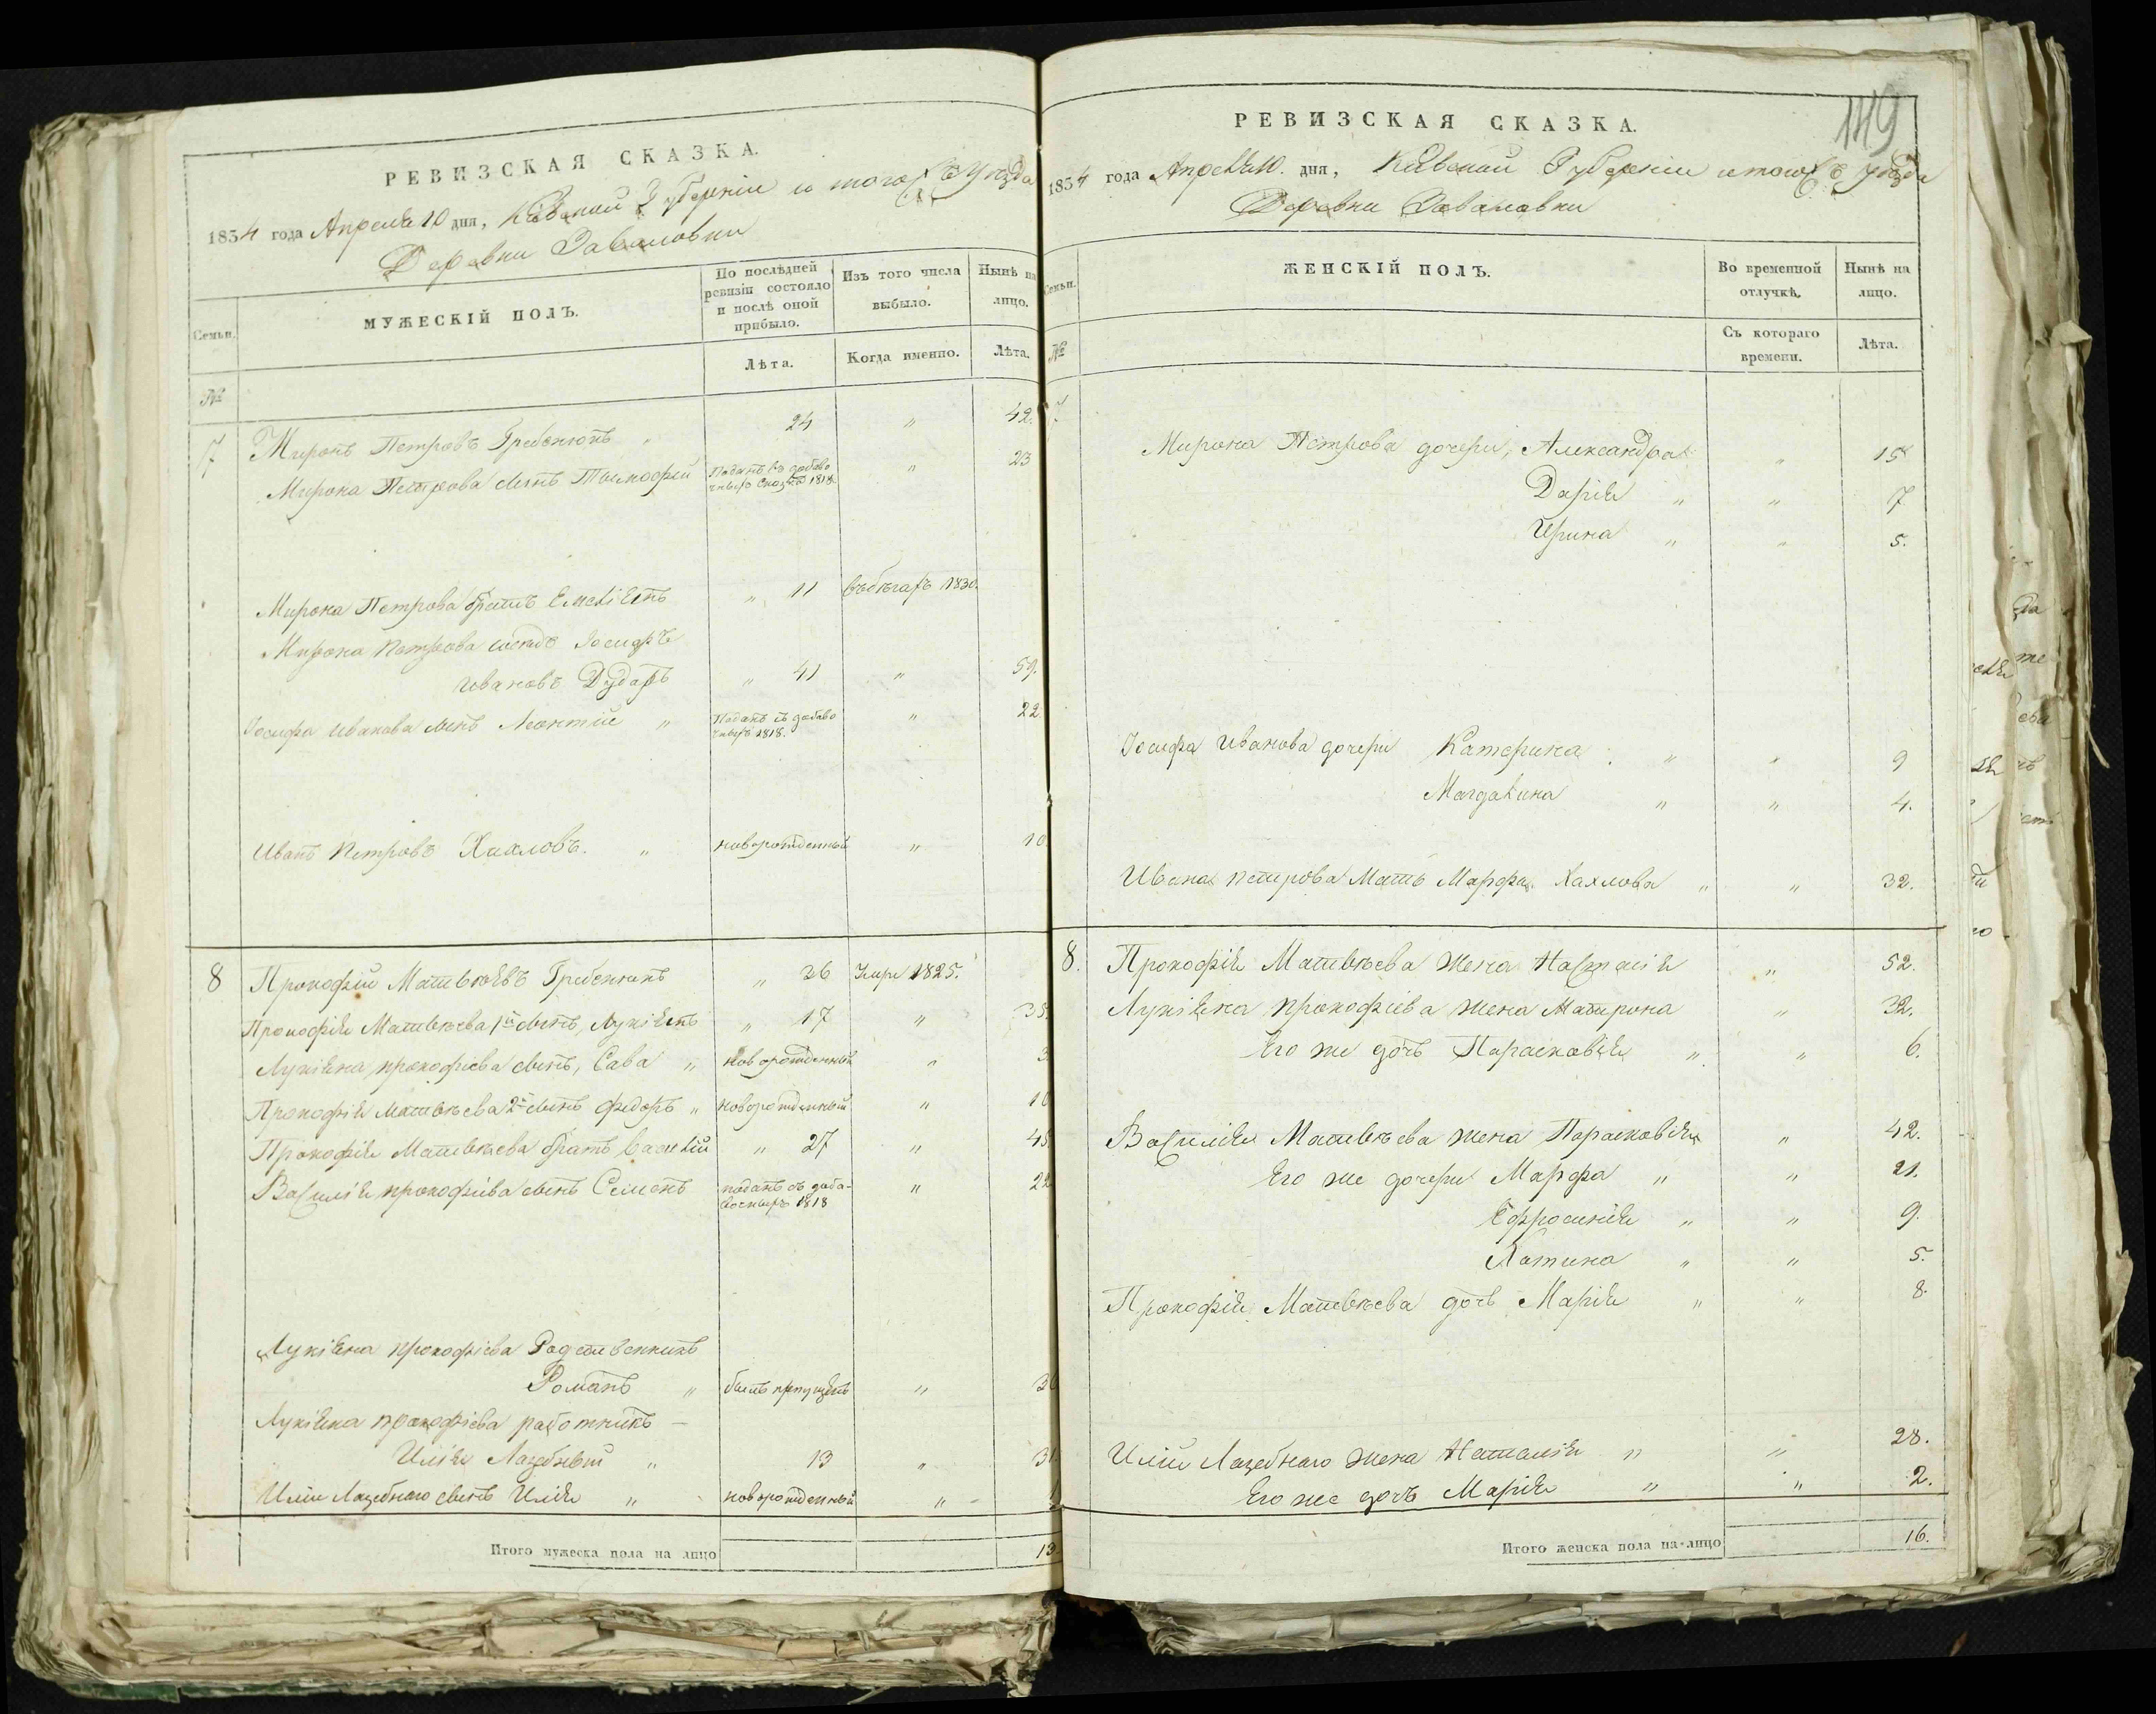 РЕВИЗСКАЯ СКАЗКА.
1834 года Апреля 10 дня, Кіевской Губерніи и тогожъ Уѣзда
Деревни Заваловки
Семьи.
МУЖЕСКІЙ ПОЛЪ.
По послѣдней ревизіи состояло и послѣ оной прибыло.
Изъ того числа выбыло.
Нынѣ на лицо.
№
Лѣта.
Когда именно.
Лѣта.
7 Миронъ Петровъ Гребенюкъ „ 24 „ 42.
Мирона Петрова сынъ Тимофей Поданъ въ добавочныхъ сказка 1818. „ 23
Мирона Петрова братъ Емеліянъ „ 11 въ бѣгахъ 1830.
Мирона Петрова Іосифъ
Ивановъ Дударь „ 41 „ 59.
Іосифа Иванова сынъ Леонтій „ Поданъ въ добавочныхъ 1818. „ 22
Иванъ Петровъ Хахловъ. „ новорожденный „ 10.
8 Прокофій Матвѣевъ Гребенюкъ „ 36 умре 1825.
Прокофія Матвѣева 1й сынъ, Лукіянъ „ 17 „ 35.
Лукіяна прокофіева сынъ, Сава „ новорожденный „ 3
Прокофія Матвѣева 2й сынъ Федоръ „ новорожденный „ 10
Прокофія Матвѣева братъ Василій „ 27 „ 45
Василія прокофіева сынъ Семенъ поданъ въ добавочныхъ 1818 „ 22
Лукіяна прокофіева Родственникъ
Романъ „ былъ пропущенъ „ 36
Лукіяна прокофіева работникъ –
Илія Лазебный „ 13 „ 31.
Иліи Лазебнаго сынъ Илія „ новорожденный „ 1
Итого мужеска пола на лицо 13
149
РЕВИЗСКАЯ СКАЗКА.
1834 года Апреля 10. дня, Кіевской Губерніи и тогожъ уѣзда
Деревни Заваловки
Семьи.
ЖЕНСКІЙ ПОЛЪ.
Во временной отлучкѣ.
Нынѣ на лицо.
№
Съ котораго времени.
Лѣта.
7.
Мирона Петрова дочери, Александра „ 15
Дарія „ „ 7
Ирина „ „ 5.
Іосифа Иванова дочери Катерина „ „ 9
Магдалина „ „ 4.
Ивана петрова Мать Марфа Хахлова „ „ 32.
8. Прокофія Матвѣева Жена Настасія „ 52.
Лукіяна прокофіева жена Матрона „ 32.
Его же дочь Парасковія „ „ 6.
Василія Матвѣева жена Парасковія „ 42.
Его же дочери Марфа „ „ 21.
Ефросинія „ „ 9.
„ „ 5.
Прокофія Матвѣева дочь Марія „ „ 8.
Иліи Лазебнаго жена Наталія „ „ 28.
Его же дочь Марія „ „ 2.
Итого женска пола на-лицо 16.